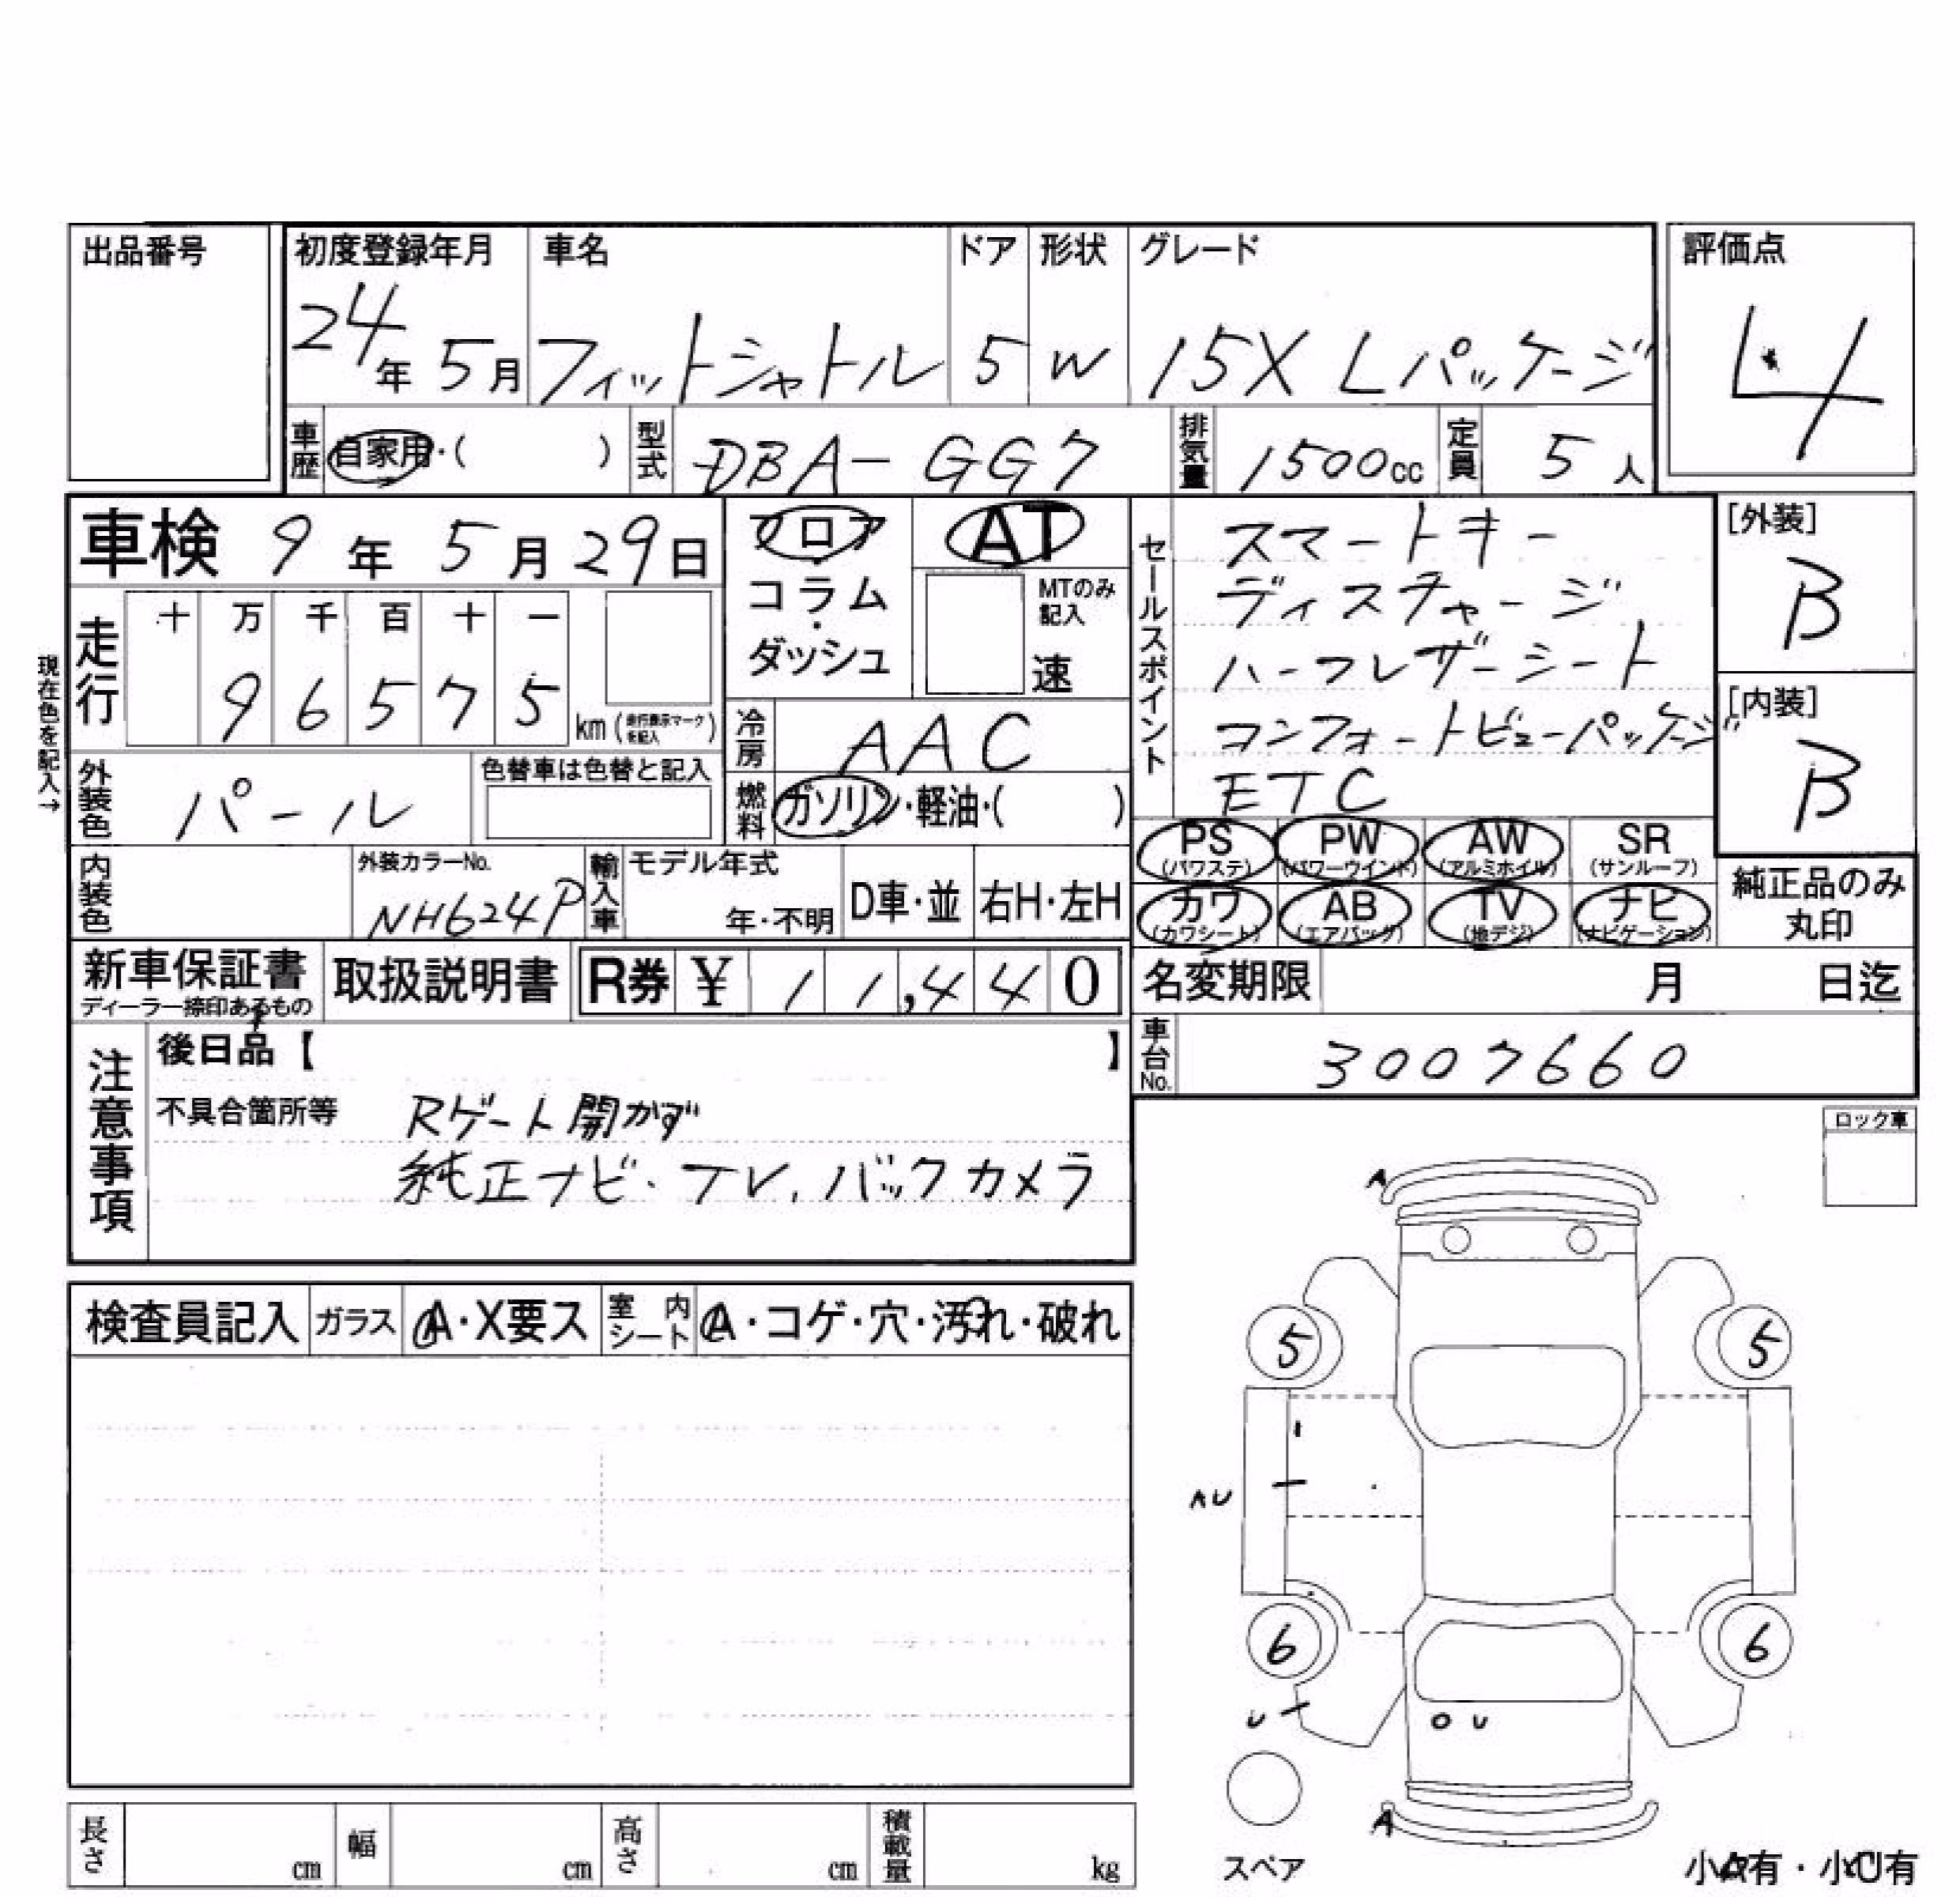 出品番号
初度登録年月 車名 ドア 形状 グレード 評価点
24年 5月 フィットシャトル 5 W 15X Lパッケージ 4
車歴 自家用・( ) 型式 DBA-GG7 排気量 1500cc 定員 5人
車検 9年 5月 29日
フロア・コラム・ダッシュ
AT
MTのみ記入
速
セールスポイント
スマートキー
ディスチャージ
ハーフレザーシート
コンフォートビューパッケージ
ETC
[外装]
B
[内装]
B
現在色を記入→
走行 十 万 千 百 十 一
9 6 5 7 5 km (走行表示マークを記入)
冷房 AAC
外装色 パール 色替車は色替と記入
燃料 ガソリン・軽油・( )
PS PW AW SR
(パワステ) (パワーウインド) (アルミホイル) (サンルーフ)
カワ AB TV ナビ
(カワシート) (エアバック) (地デジ) (ナビゲーション)
純正品のみ
丸印
内装色 外装カラーNo. NH624P 輸入車 モデル年式 年・不明 D車・並 右H・左H
新車保証書 取扱説明書 R券 ¥ 11,440
ディーラー捺印あるもの
名変期限 月 日迄
車台No. 3007660
注意事項
後日品【 】
不具合箇所等 Rゲート開かず
純正ナビ・TV、バックカメラ
ロック車
検査員記入 ガラス A・X要ス 室内シート A・コゲ・穴・汚れ・破れ
A
5 5
AU
6 6
U U
A
スペア
小A有・小U有
長さ cm 幅 cm 高さ cm 積載量 kg